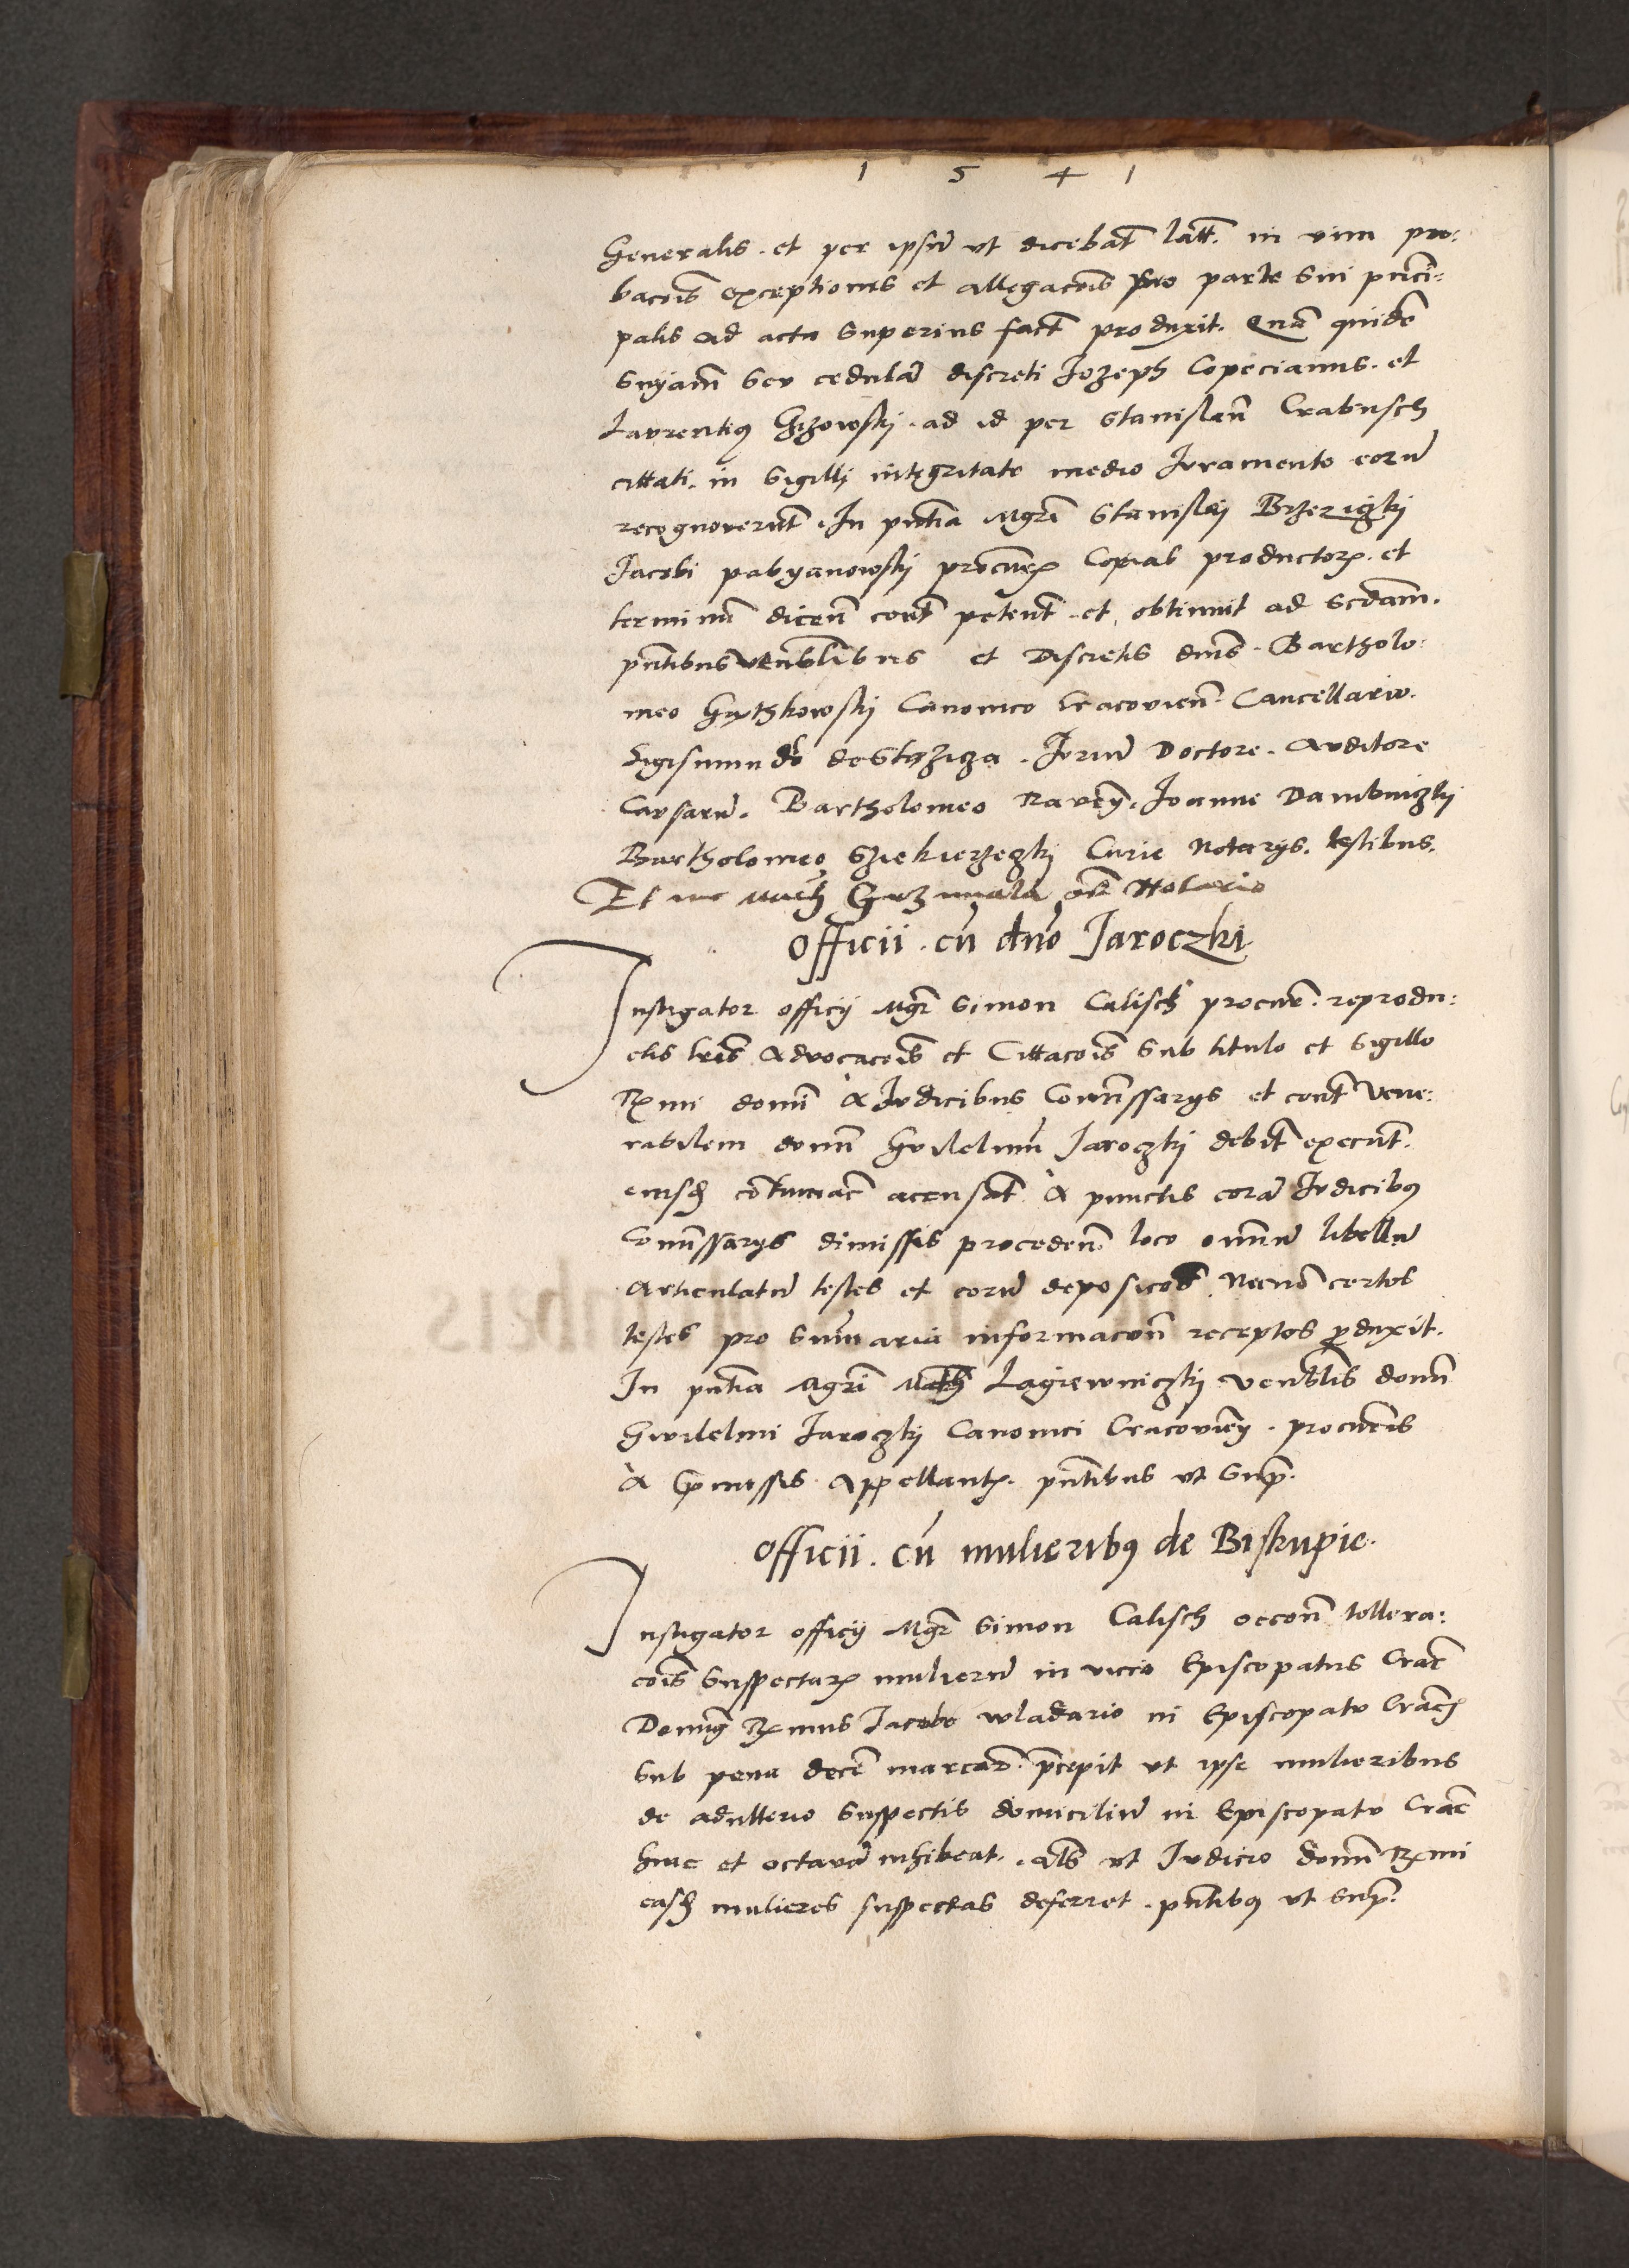 1 5 4 1
Generalis. et per ipsū ut dicebat̄ latt. in vim pro:
bac̄ois exceptiones et allegac̄ois pro parte sui prīnci:
palis ad acta superius fact̄ produxit. Quā quidē
seu cedulā discreti Jozeph Copecianus. et
Laurentiꝰ Gizowskj. ad id per Stanislaū Crabusch
cittati. in sigilli integritate medio Juramento eorū
recognoverūt. In pn̄tia Mgr̄i Stanislai Brzericzkj
Jacobi pabyanowskj procur̄. Copias productorꝫ. et
terminū dicen̄ cont̄ peteūt. et obtinuit ad sc̄dam.
pn̄tibus venlībus et Discretis dn̄is. Bartholo:
meo Gyzthkowskj Canonico Cracovien̄ Cancellario.
Sigismundo de Stężicza. Juriū Doctore. Auditore
Causarū. Bartholomeo Joanne Dambniczkj
Bartholomeo Curie Notarijs. testibus.
Et me Notario
Officii. cū dn̄o Jaroczki
Instigator officij Mgr̄ Simon Calisch procur̄. reprodu:
ctis lr̄is Advocac̄ois et Cittac̄ois sub titulo et sigillo
Rꝫmi domī A Judicibus Com̄issarijs et cont̄ Vene:
rabilem domn̄ Guilelmū Jaroczkj debit̄ executt̄.
eiusdꝫ contumac̄ acusat̄. A punctis corā Judicibꝰ
Com̄issarijs dimissis proceden̄. loco omniū libellū
Articulatū testes et eorū deposic̄oēs. Necnō certos
testes pro sum̄aria informac̄on̄ receptos p̄duxit.
In pn̄tia Mgr̄i Math Lagiewniczkj Venlīs domn̄
Gwilelmi Jaroczkj Canonici Cracovien̄. procur̄is
A p̄missis Appellantꝫ. pn̄tibus ut sup̄.
Officii. cū mulieribꝰ de Biskupie.
Instigator officij Mgr̄ Simon Calisch occoñ tollera:
c̄ois suspectarꝫ mulierū in vicio Episcopatus Crac̄
Domīꝰ Rꝫmus Jacobo wladario in Episcopatu Crac̄
sub pena decē marcarꝫ. p̄cepit ut ipse mulieribus
de adulterio suspectis domiciliū in Episcopatu Crac̄
hinc et octavā inhibeat. al̄s ut Judicio domī Rꝫmi
easdꝫ mulieres suspectas deferret. pn̄tibꝰ ut sup̄.